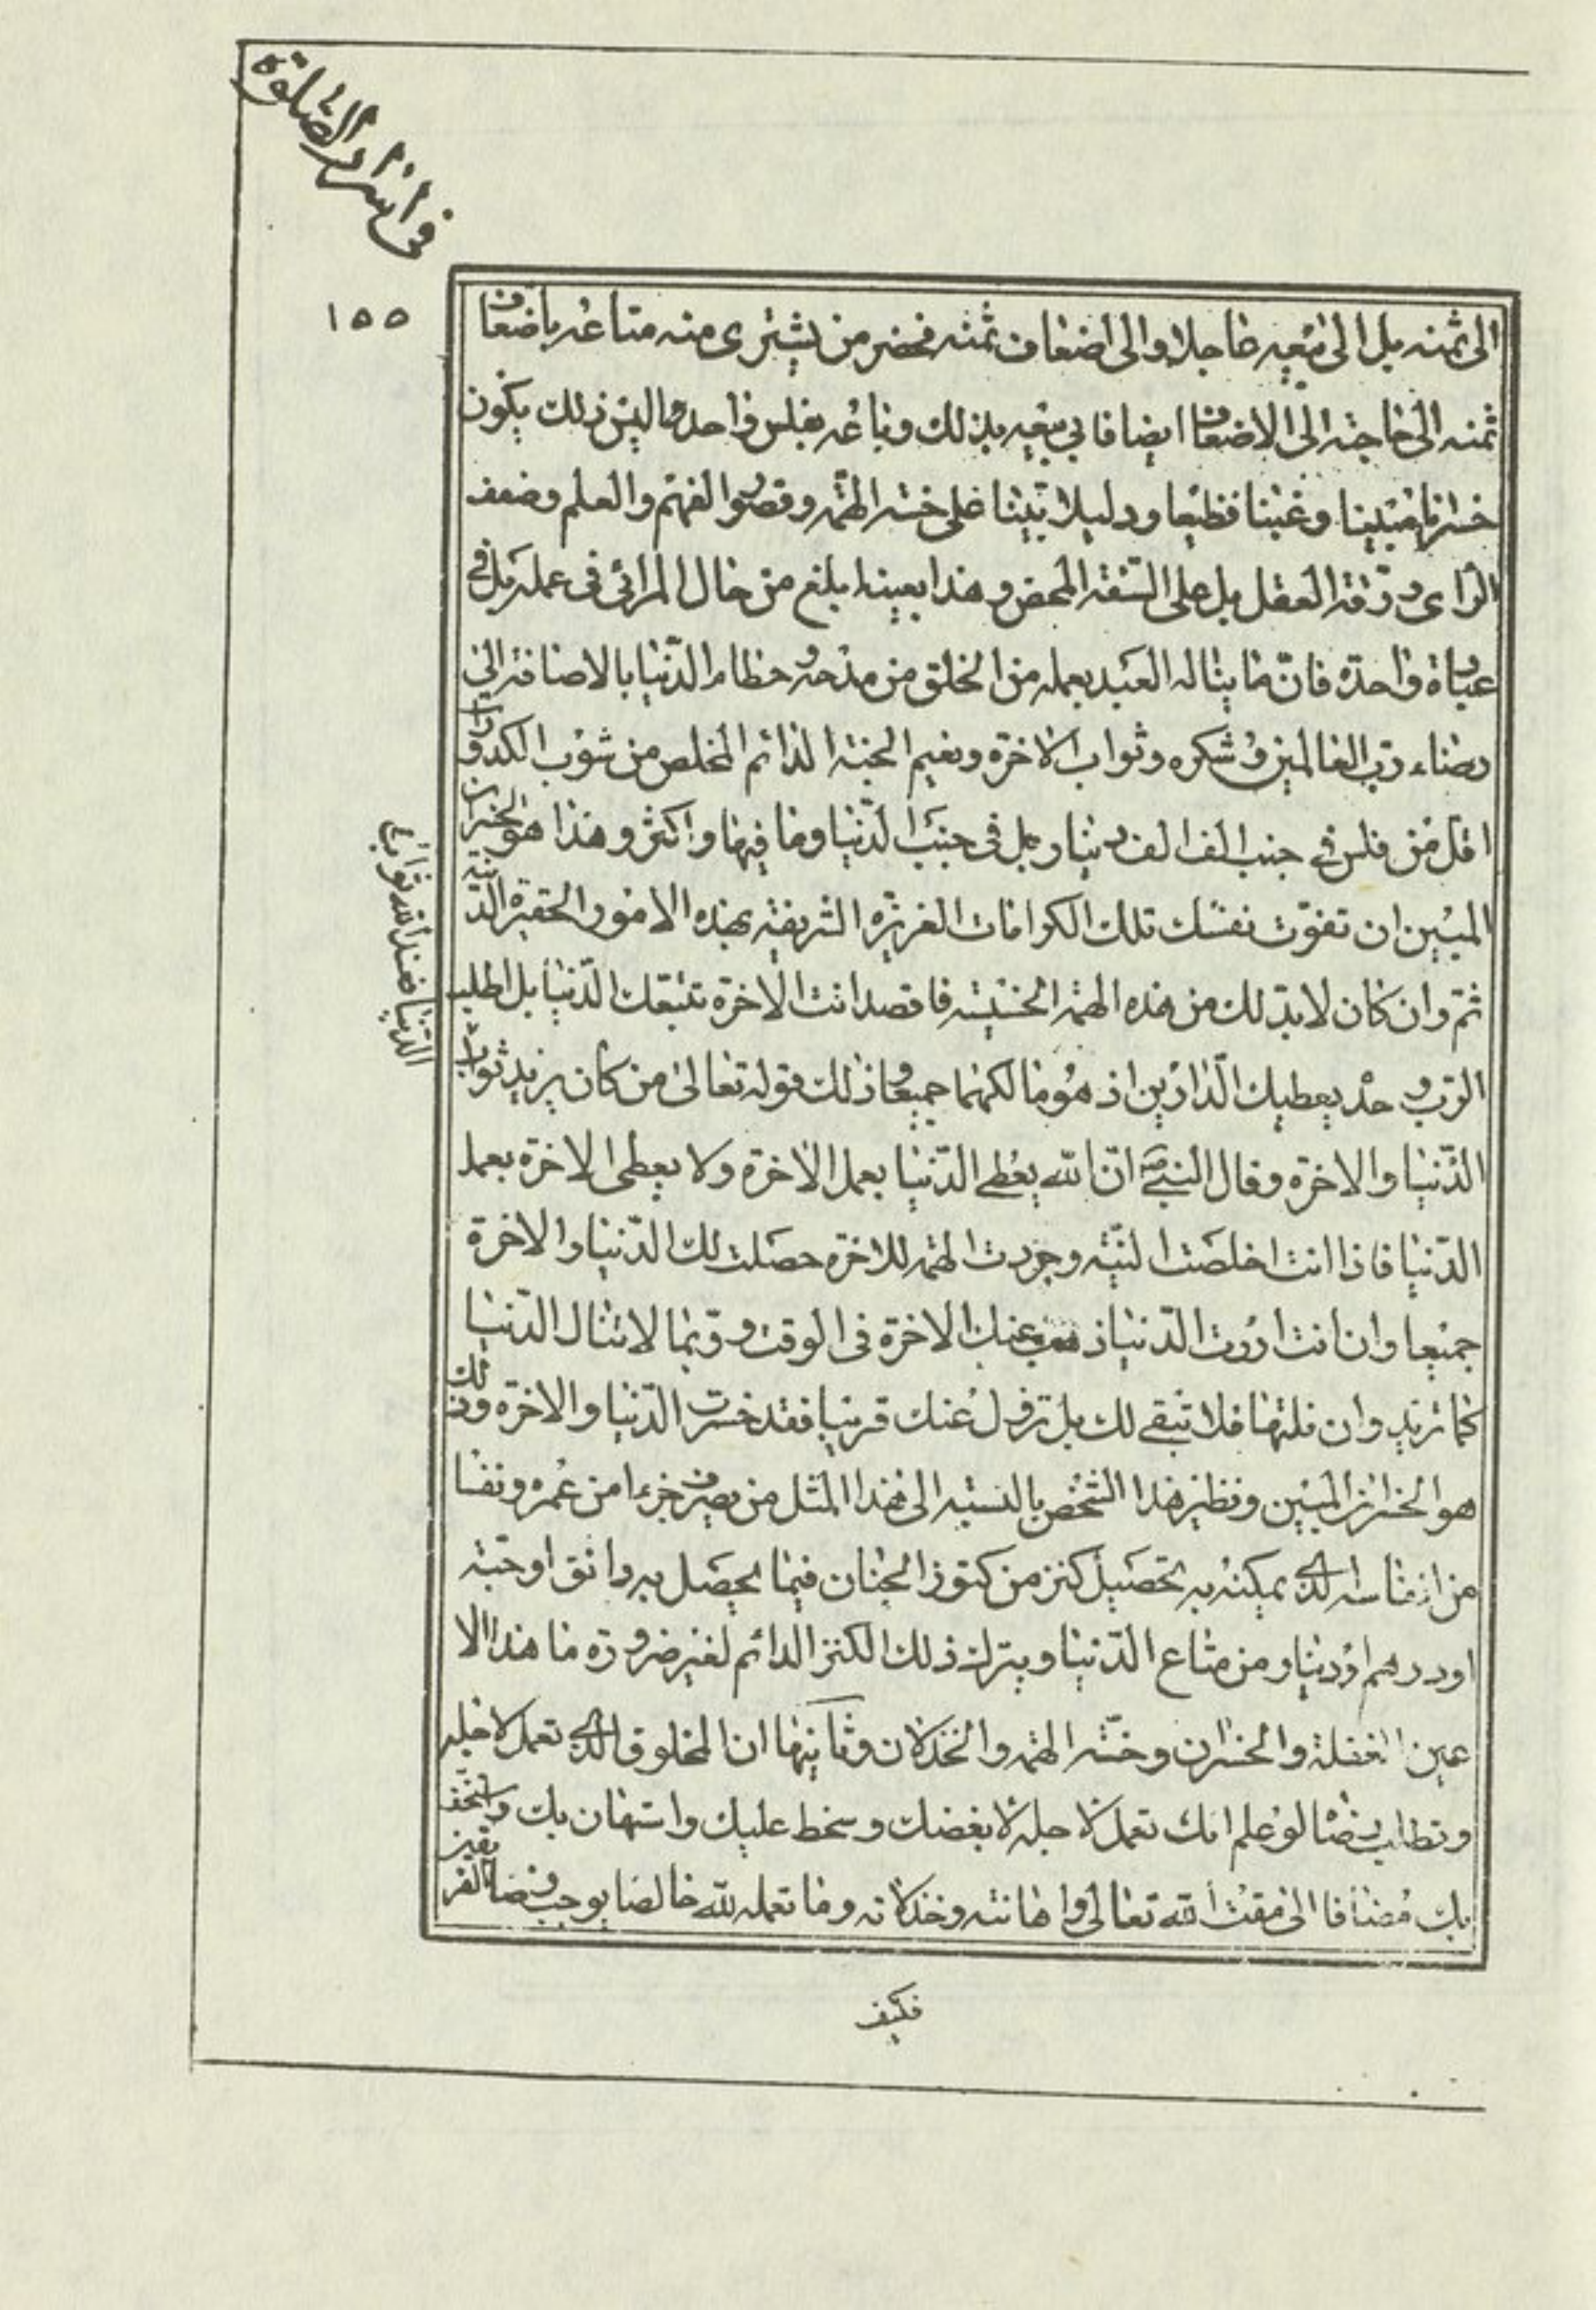 في اسرار الصلوة
١٥٥
الى ثمنه بل الى بيعه عاجلا والى اضعاف ثمنه فحضر من يشترى منه متاعه باضعاف
ثمنه الى حاجته الى الاضعاف ايضا فابي بيعه بذلك وباعه بفلس واحد اليس ذلك يكون
خسرانا مبينا وغبنا فظيعا ودليلا بينا على خسة الهمة وقصور الفهم والعلم وضعف
الراى ورقة العقل بل على السفه المحض وهذا بعينه ابلغ من حال المرائى فى عمله بل في
عبادة واحدة فان ما يناله العبد بعمله من الخلق من مدحة وحطام الدنيا بالاضافة الى
رضاء رب العالمين وشكره وثواب الاخرة ونعيم الجنة الدائم المخلص من شوب الكدورات
اقل من فلس في جنب الف الف دينار بل فى جنب الدنيا وما فيها واكثر وهذا هو الخسران
المبين ان تفوت نفسك تلك الكرامات العزيزة الشريفة بهذه الامور الحقيرة الدنية
ثم وان كان لابد لك من هذه الهمة الخسيسة فاقصد انت الاخرة تتبعك الدنيا بل اطلب
الرب وحده يعطيك الدارين اذ هو مالكهما جميعا وذلك قوله تعالى من كان يريد ثواب
الدنيا فعند الله ثواب
الدنيا والاخرة وقال النبي ص ان الله يعطي الدنيا بعمل الاخرة ولا يعطى الاخرة بعمل
الدنيا فاذا انت اخلصت النية وجردت الهمة للاخرة حصلت لك الدنيا والاخرة
جميعا وان انت اردت الدنيا ذهبت عنك الاخرة فى الوقت وربما لا تنال الدنيا
كما تريد وان نلتها فلا تبقى لك بل تزول عنك قريبا فقد خسرت الدنيا والاخرة وذلك
هو الخسران المبين ونظير هذا الشخص بالنسبة الى هذا المثل من يصرف جزءا من عمره ونفسا
من انفاسه الذي يمكنه به تحصيل كنز من كنوز الجنان فيما يحصل به دانق او حبة
او درهم او دينار من متاع الدنيا ويترك ذلك الكنز الدائم لغير ضرورة ما هذا الا
عين الغفلة والخسران وخسة الهمة والخذلان وثانيها ان المخلوق الذي تعمل لاجله
وتطلب رضاه لو علم انك تعمل لاجله لابغضك وسخط عليك واستهان بك واستخف
بك مضافا الى مقت الله تعالى واهانته وخذلانه وما تعمله لله خالصا يوجب رضا الفريقين
فكيف